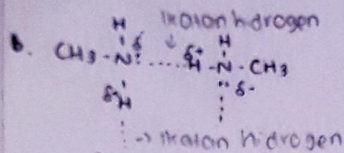 H ikatan hidrogen
b. CH3 - N: δ- ..... δ+ H - N - CH3
H
δ+ H δ-
H
→ ikatan hidrogen